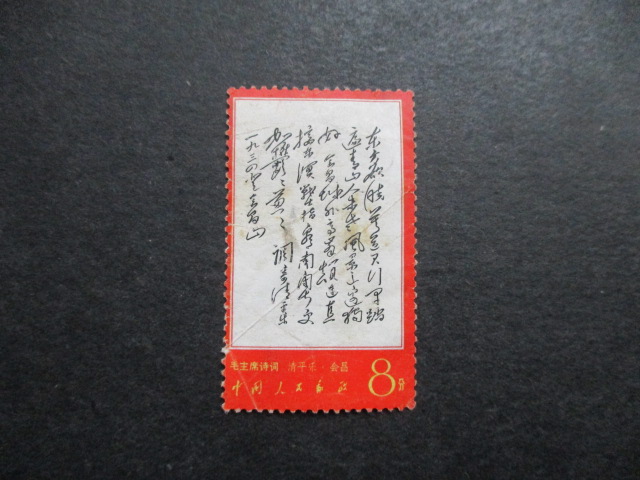 东方欲晓 莫道君行早 踏
遍青山人未老 风景这边独
好 会昌城外高峰 颠连直
接东溟 战士指看南粤 更
加郁〻葱〻 调寄清平乐
一九三四 登会昌山
毛主席诗词 清平乐·会昌
中国人民邮政 8分